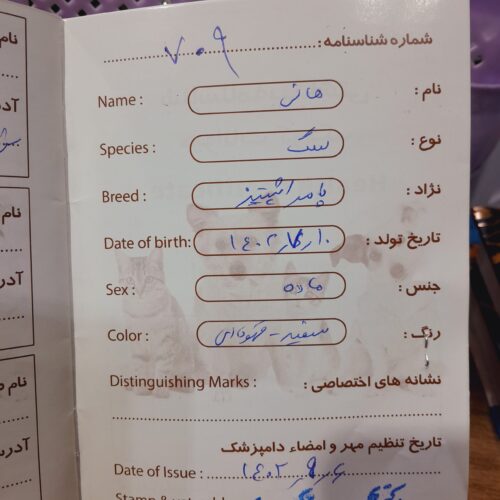 شماره شناسنامه : ۷۰۹
Name : هانی نام :
Species : سگ نوع :
Breed : نژاد :
Date of birth: ۱۴۰۲ تاریخ تولد :
Sex : ماده جنس :
Color : سفید - قهوه‌ای رنگ :
Distinguishing Marks : نشانه های اختصاصی :
تاریخ تنظیم مهر و امضاء دامپزشک
Date of Issue : ۱۴۰۲
نام
آدر
نام
آدر
نام ص
آدرس